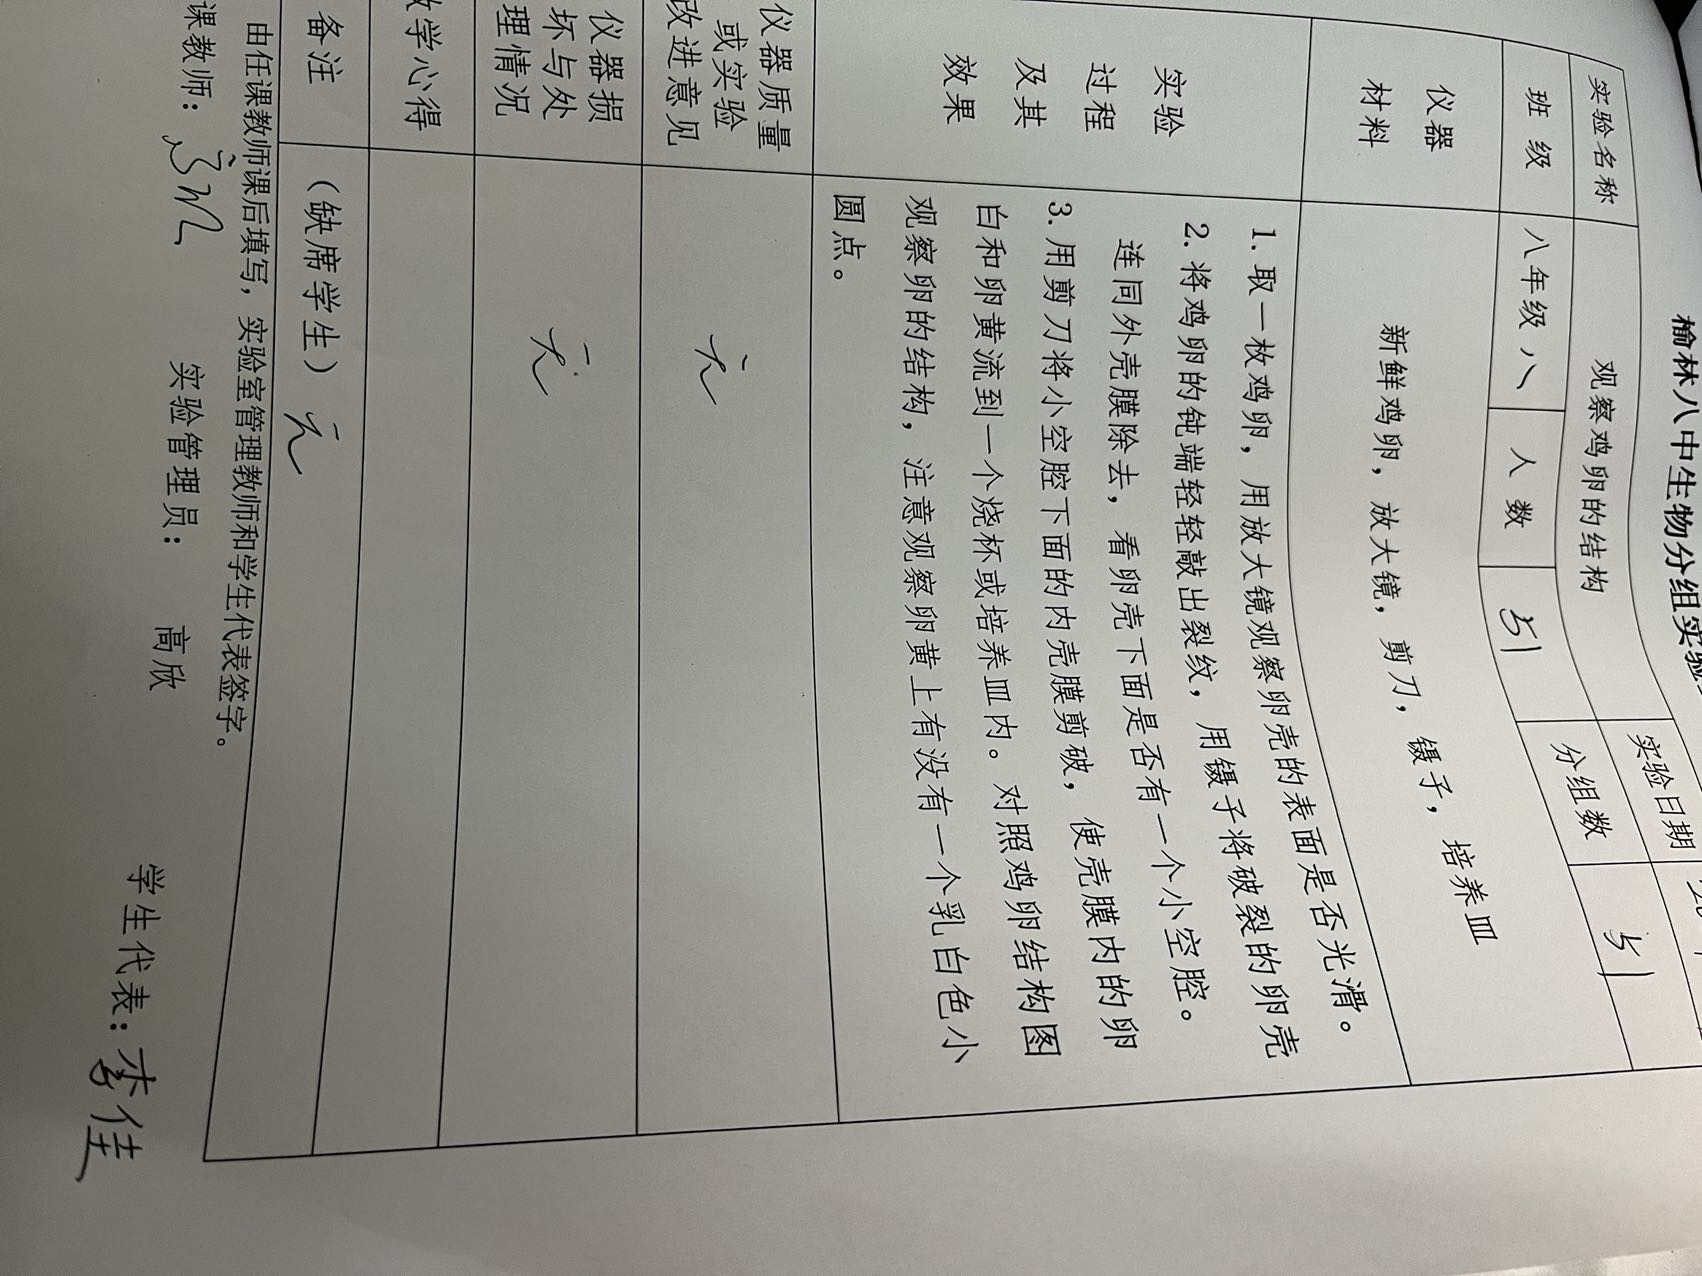 榆林八中生物分组实验
实验名称 观察鸡卵的结构 实验日期
班 级 八年级 八 人 数 51 分组数 51
仪器材料 新鲜鸡卵，放大镜，剪刀，镊子，培养皿
实验过程及其效果
1. 取一枚鸡卵，用放大镜观察卵壳的表面是否光滑。
2. 将鸡卵的钝端轻轻敲出裂纹，用镊子将破裂的卵壳
连同外壳膜除去，看卵壳下面是否有一个小空腔。
3. 用剪刀将小空腔下面的内壳膜剪破，使壳膜内的卵
白和卵黄流到一个烧杯或培养皿内。对照鸡卵结构图
观察卵的结构，注意观察卵黄上有没有一个乳白色小
圆点。
仪器质量或实验改进意见 无
仪器损坏与处理情况 无
教学心得
备注 （缺席学生）无
由任课教师课后填写，实验室管理教师和学生代表签字。
课教师： 实验管理员： 高欣 学生代表：李佳